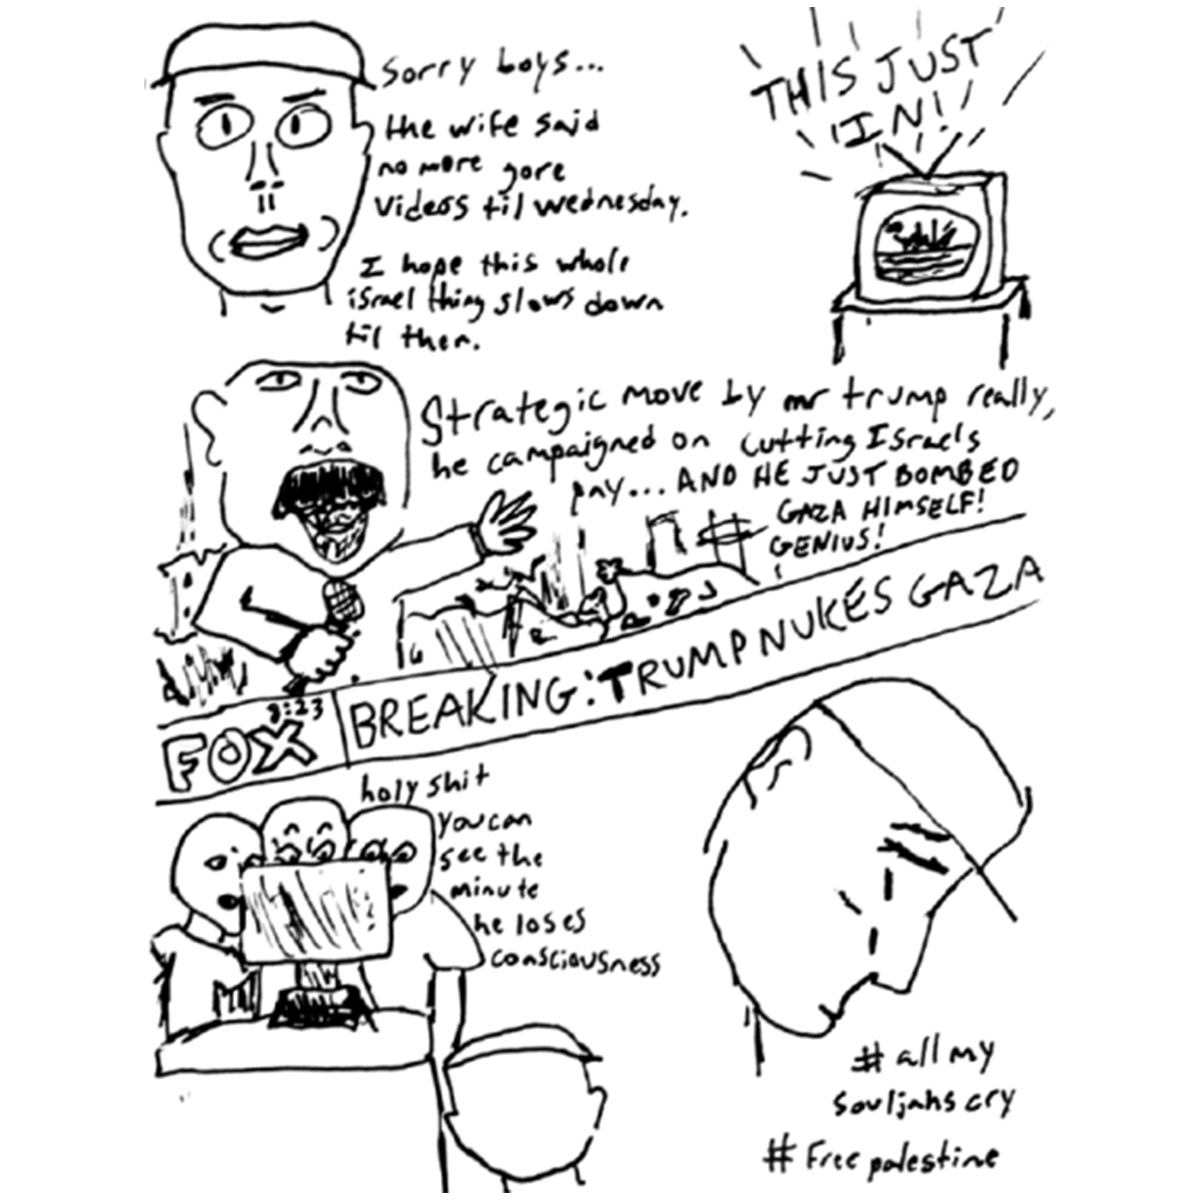 Sorry boys...
the wife said
no more gore
videos til wednesday.
I hope this whole
israel thing slows down
til then.
THIS JUST
IN!
Strategic move by mr trump really,
he campaigned on cutting Israels
pay... AND HE JUST BOMBED
GAZA HIMSELF!
GENIUS!
8:23
FOX
BREAKING: TRUMP NUKES GAZA
holy shit
you can
see the
minute
he loses
consciousness
# all my
souljahs cry
# Free palestine